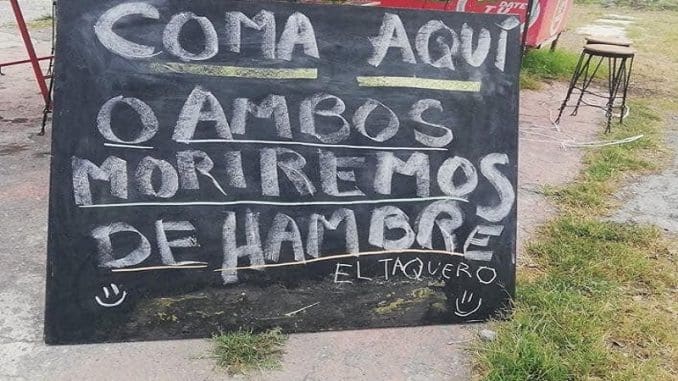 COMA AQUÍ
O AMBOS
MORIREMOS
DE HAMBRE
EL TAQUERO